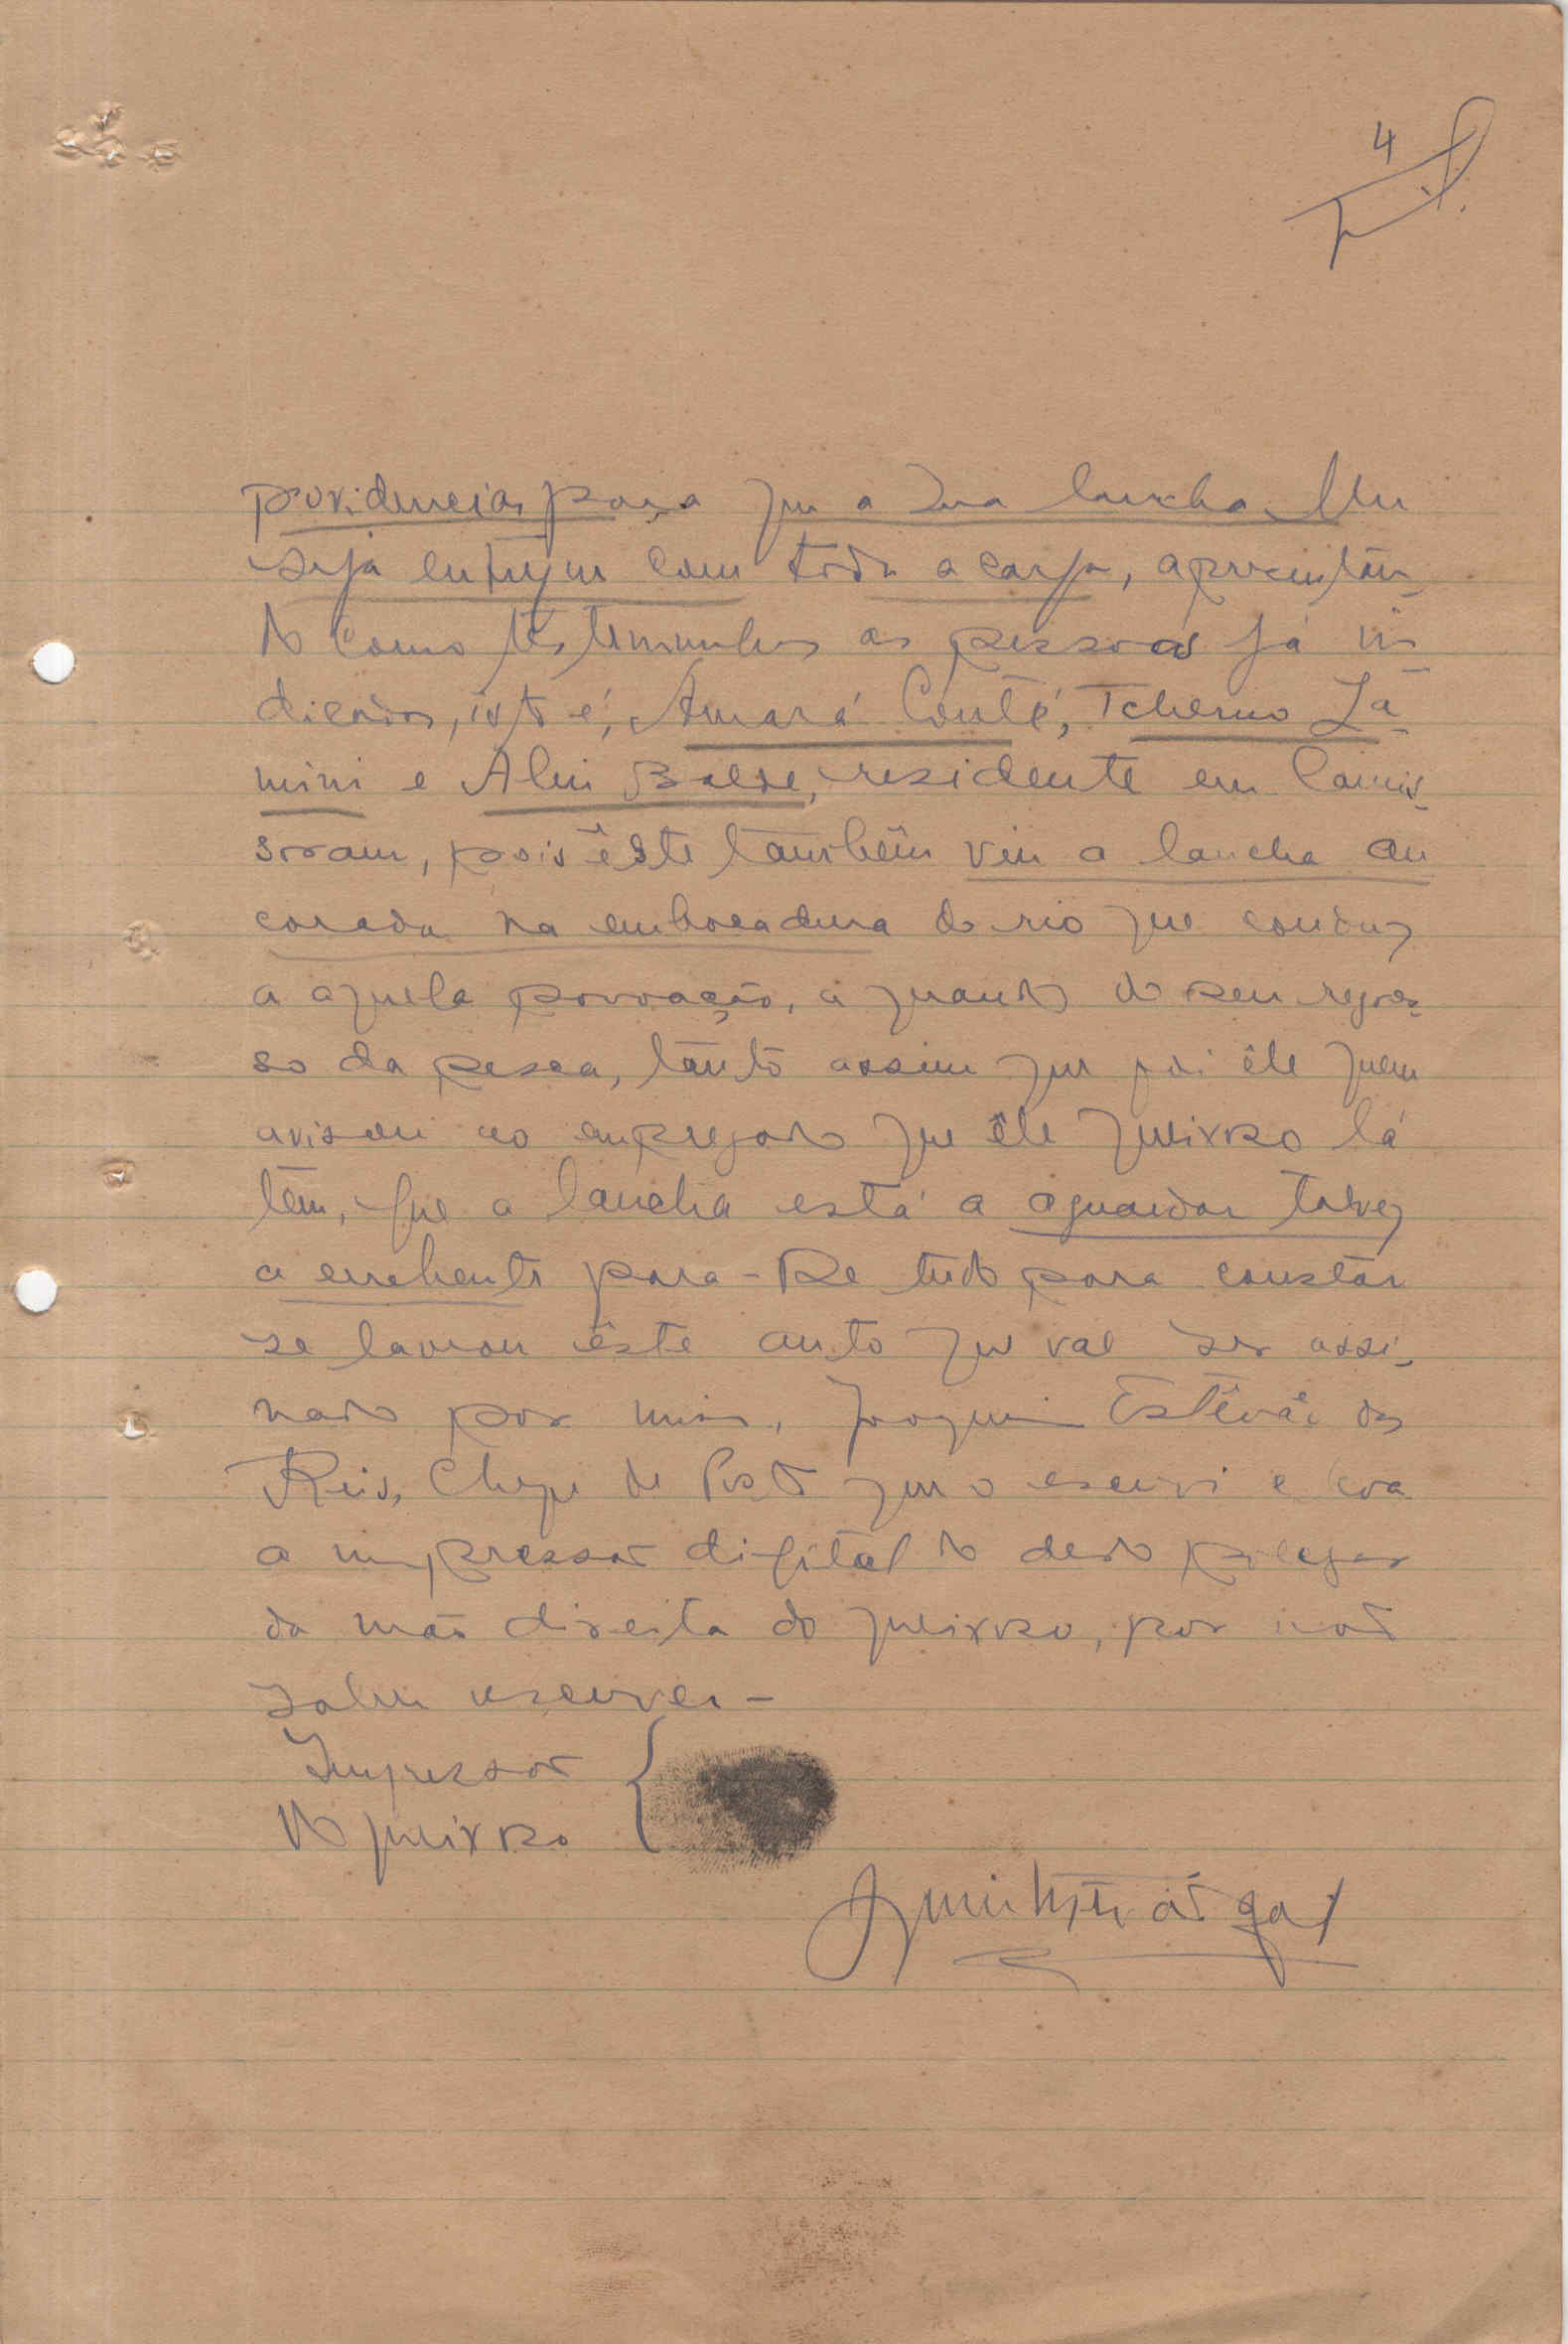 4
providencias para que a sua lancha lhe
seja entregue com toda a carga, apresentan-
do como testemunhas as pessoas já in-
dicadas, isto é, Amará Conté, Tcherno La-
mini e Aliu Balde, residente em Camis-
soram, pois êste também viu a lancha an
corada na embocadura do rio que conduz
a aquela povoação, a quando do seu regres-
so da pesca, tanto assim que foi êle quem
avisou ao empregado que êle queixoso lá
tem, que a lancha está a aguardar talvez
a enchente para - De tudo para constar
se lavrou êste auto que vai ser assi-
nado por mim, Joaquim Estêvão dos
Reis, Chefe de Posto que o escrevi e com
a impressão digital do dedo polegar
da mão direita do queixoso, por não
saber escrever -
Impressão
do queixoso